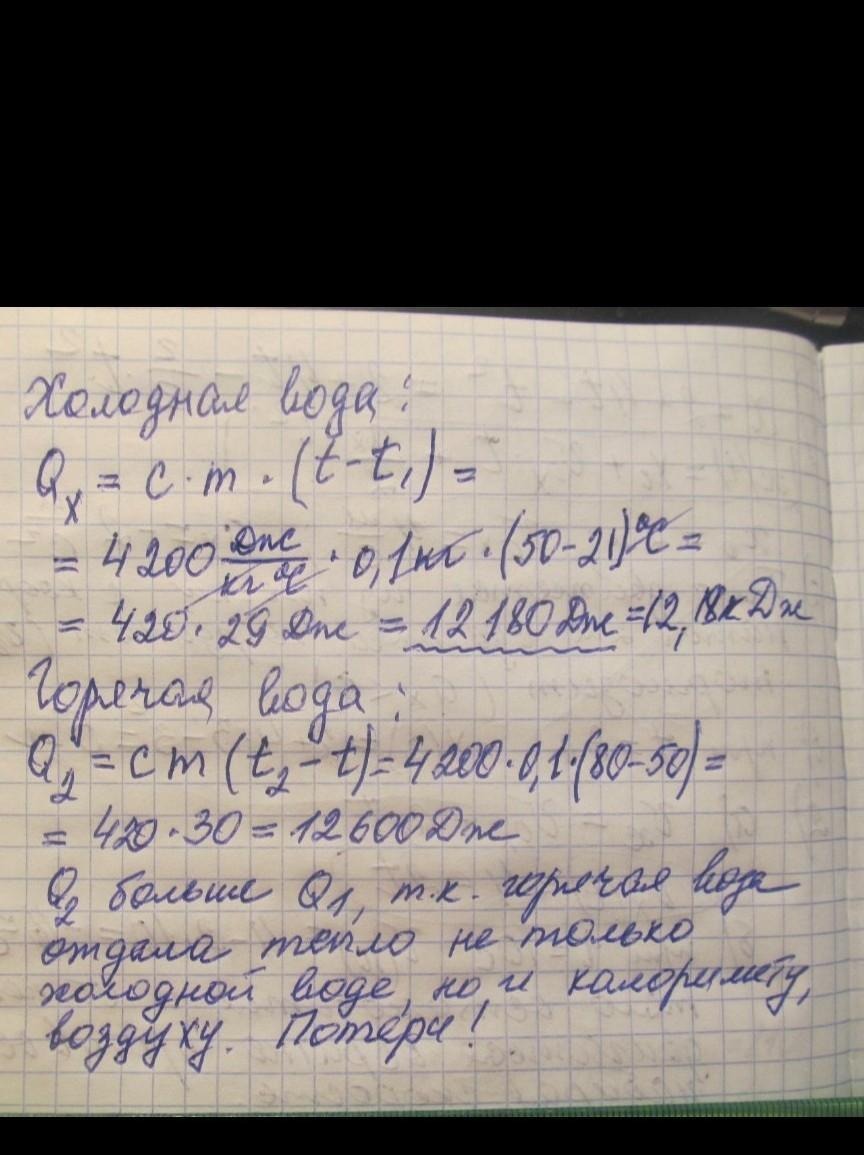 Холодная вода:
Qₓ = c·m·(t-t₁) =
= 4200 Дж/кг°С · 0,1кг·(50-21)°С =
= 420·29 Дж = 12180 Дж = 12,18кДж
Горячая вода:
Q₂ = cm(t₂-t)=4200·0,1·(80-50)=
= 420·30 = 12600Дж
Q₂ больше Q₁, т.к. горячая вода
отдала тепло не только
холодной воде, но и калоримету,
воздуху. Потери!